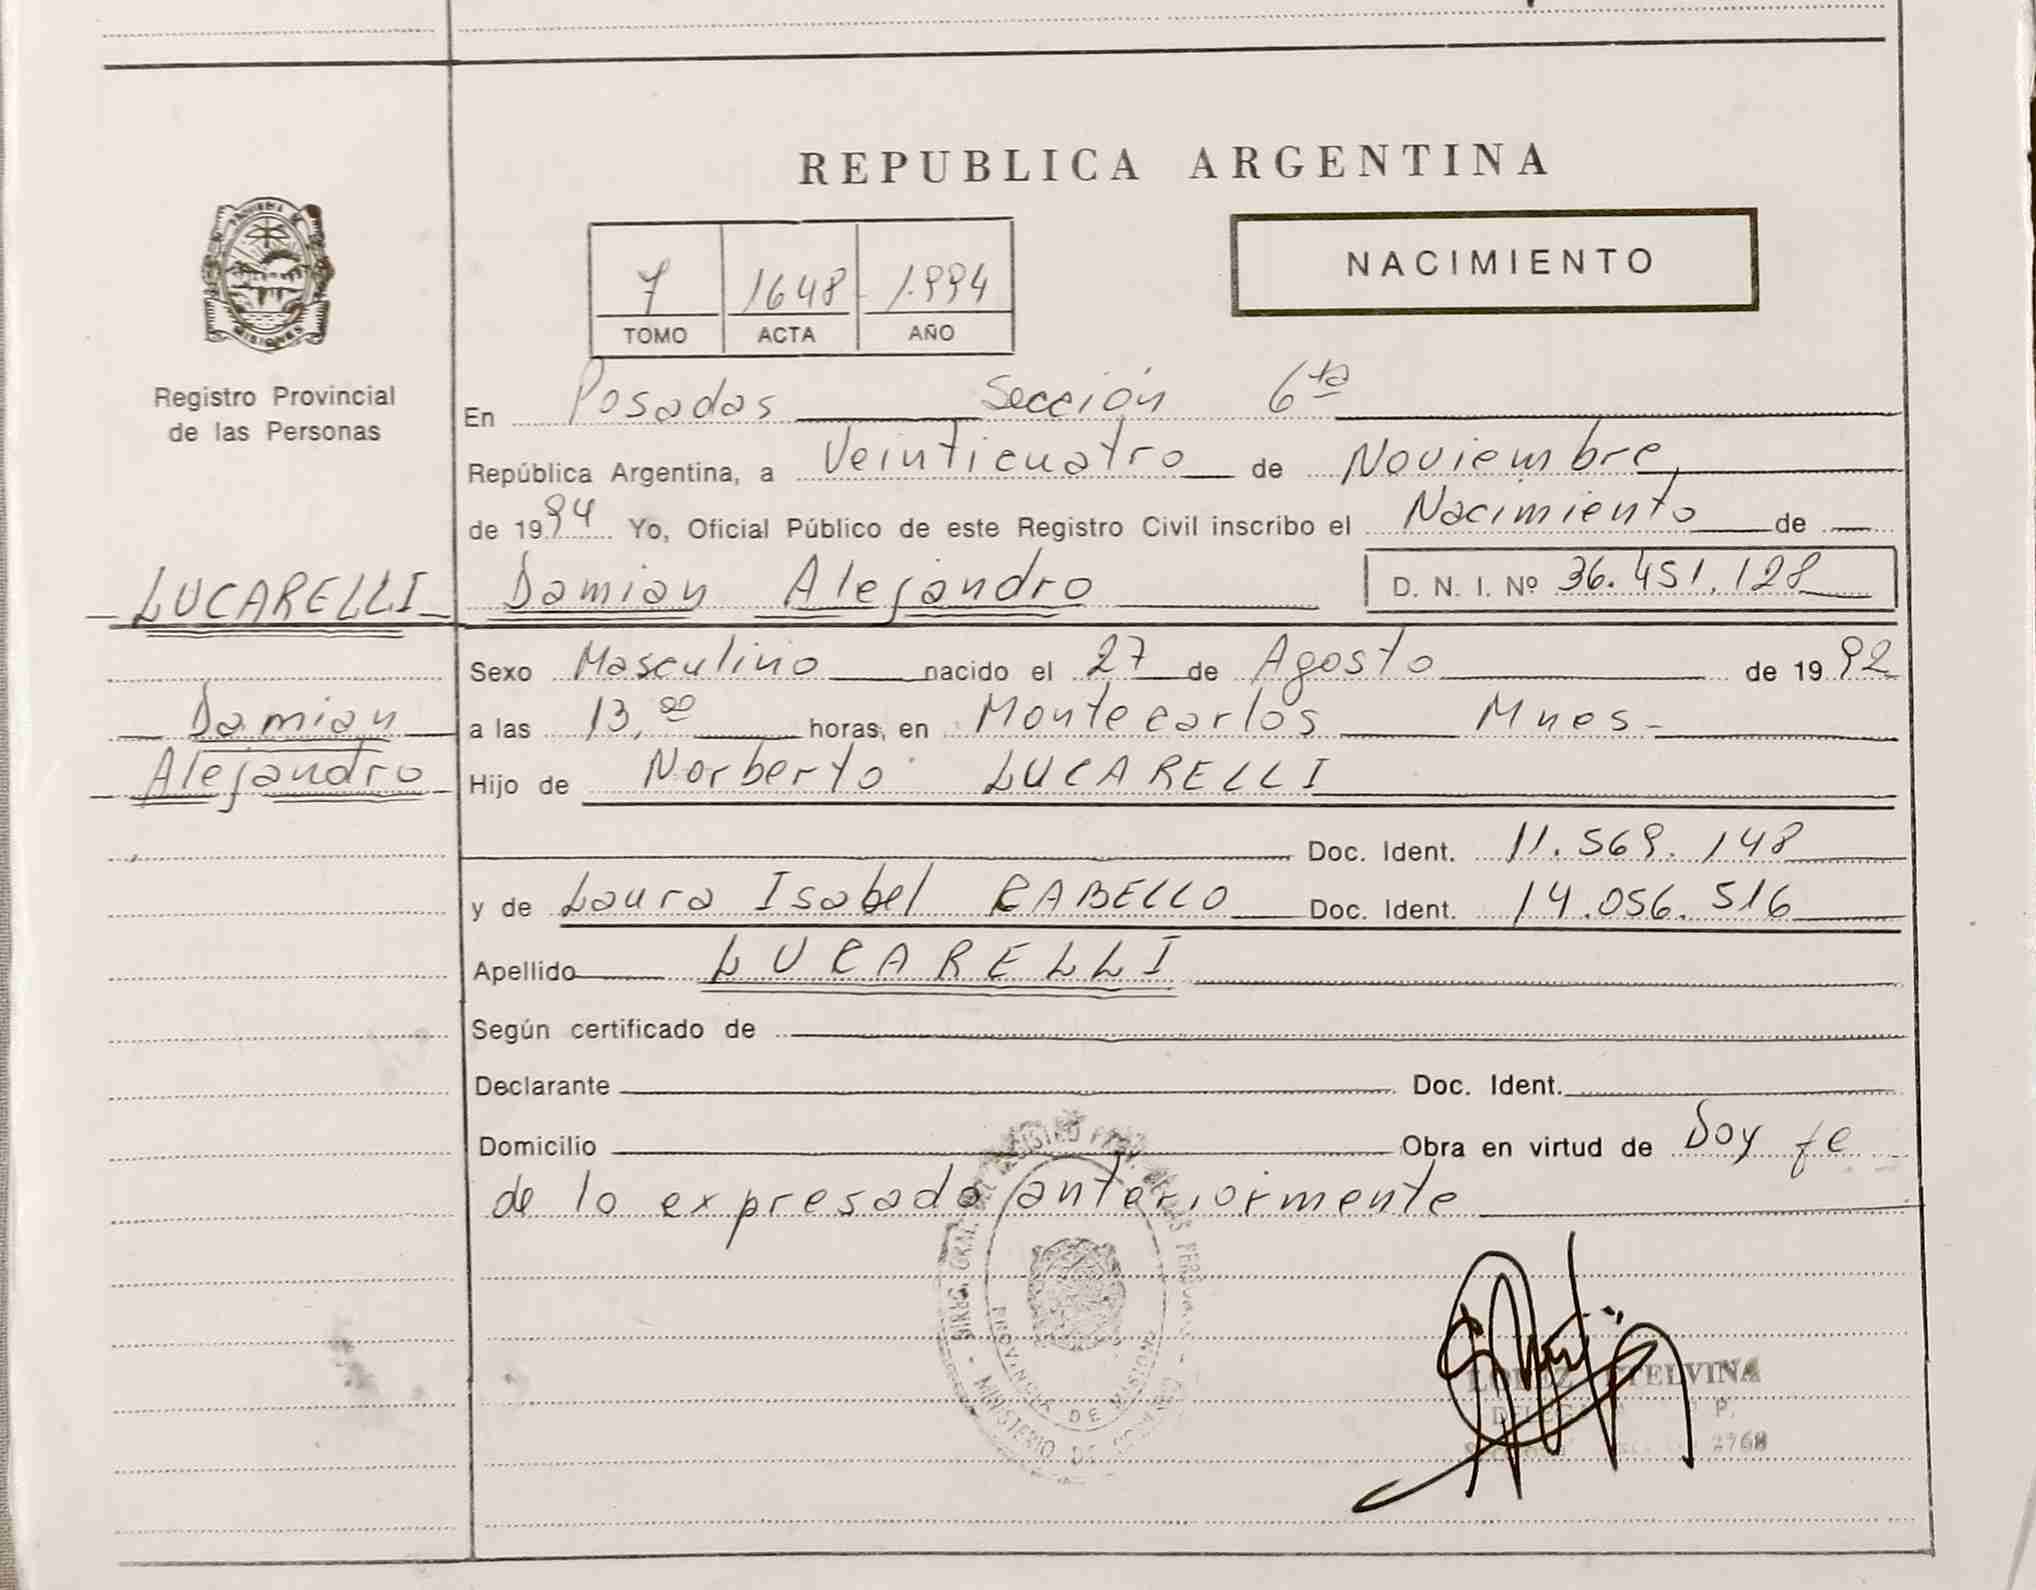 REPUBLICA ARGENTINA
PROVINCIA DE
MISIONES
Registro Provincial
de las Personas
NACIMIENTO
7 1648 1.994
TOMO ACTA AÑO
En Posadas Sección 6ta
República Argentina, a Veinticuatro de Noviembre,
de 1994 Yo, Oficial Público de este Registro Civil inscribo el Nacimiento de
LUCARELLI Damian Alejandro D. N. I. Nº 36.451.128
Sexo Masculino nacido el 27 de Agosto de 1992
Damian
a las 13,00 horas, en Montecarlos Mnes-
Alejandro
Hijo de Norberto LUCARELLI
Doc. Ident. 11.569.148
y de Laura Isabel RABELLO Doc. Ident. 14.056.516
Apellido LUCARELLI
Según certificado de
Declarante Doc. Ident.
Domicilio Obra en virtud de Doy fe
de lo expresado anteriormente
PROVINCIA DE MISIONES
MINISTERIO DE
LOPEZ ETELVINA
2768